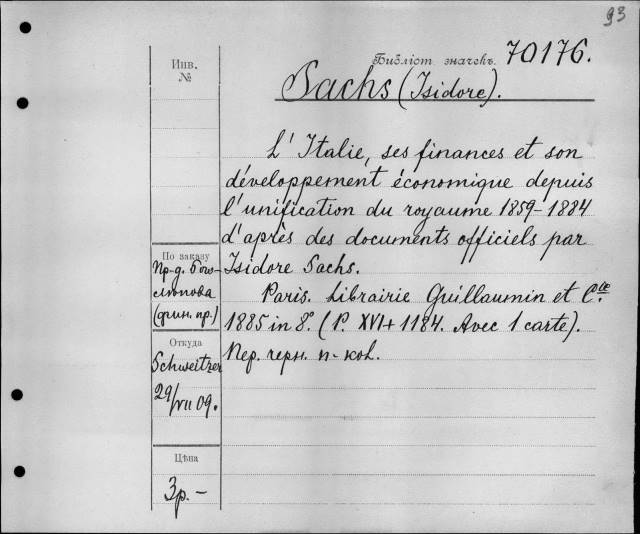 93
Библіот. значекъ. 70176.
Инв.
№
Sachs (Isidore).
L'Italie, ses finances et son
développement économique depuis
l'unification du royaume 1859-1884
d'après des documents officiels par
Isidore Sachs.
Paris. Librairie Guillaumin et Cie.
1885 in 8º. (1º. XVI + 1184. Avec 1 carte).
Пер. черн. п-кол.
По заказу
Пр-д.
(фин. пр.)
Откуда
Schweitzer
29/VII 09.
Цѣна
3р.-